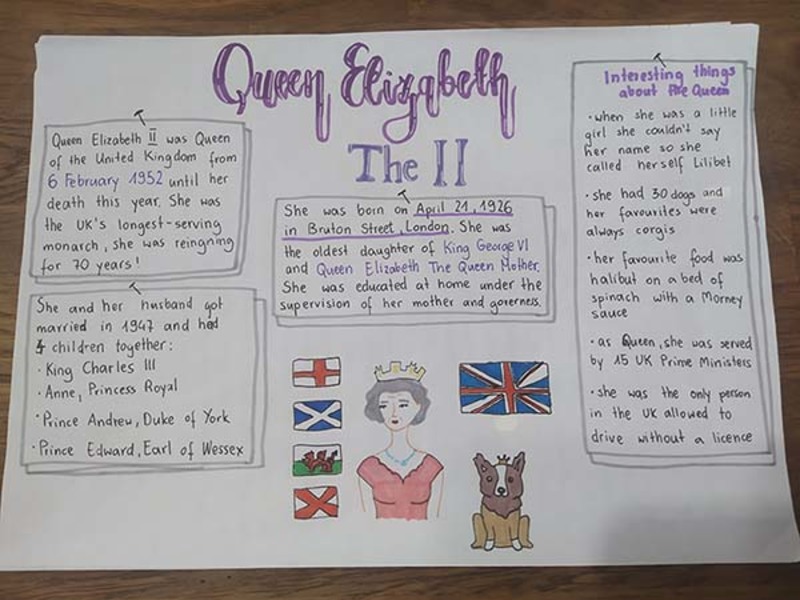 Queen Elizabeth
The II
Queen Elizabeth II was Queen
of the United Kingdom from
6 February 1952 until her
death this year. She was
the UK's longest-serving
monarch, she was reingning
for 70 years!
She and her husband got
married in 1947 and had
4 children together:
· King Charles III
· Anne, Princess Royal
· Prince Andrew, Duke of York
· Prince Edward, Earl of Wessex
She was born on April 21, 1926
in Bruton Street, London. She was
the oldest daughter of King George VI
and Queen Elizabeth The Queen Mother.
She was educated at home under the
supervision of her mother and governess.
Interesting things
about the Queen
· when she was a little
girl she couldn't say
her name so she
called herself Lilibet
· she had 30 dogs and
her favourites were
always corgis
· her favourite food was
halibut on a bed of
spinach with a Morney
sauce
· as Queen, she was served
by 15 UK Prime Ministers
· she was the only person
in the UK allowed to
drive without a licence